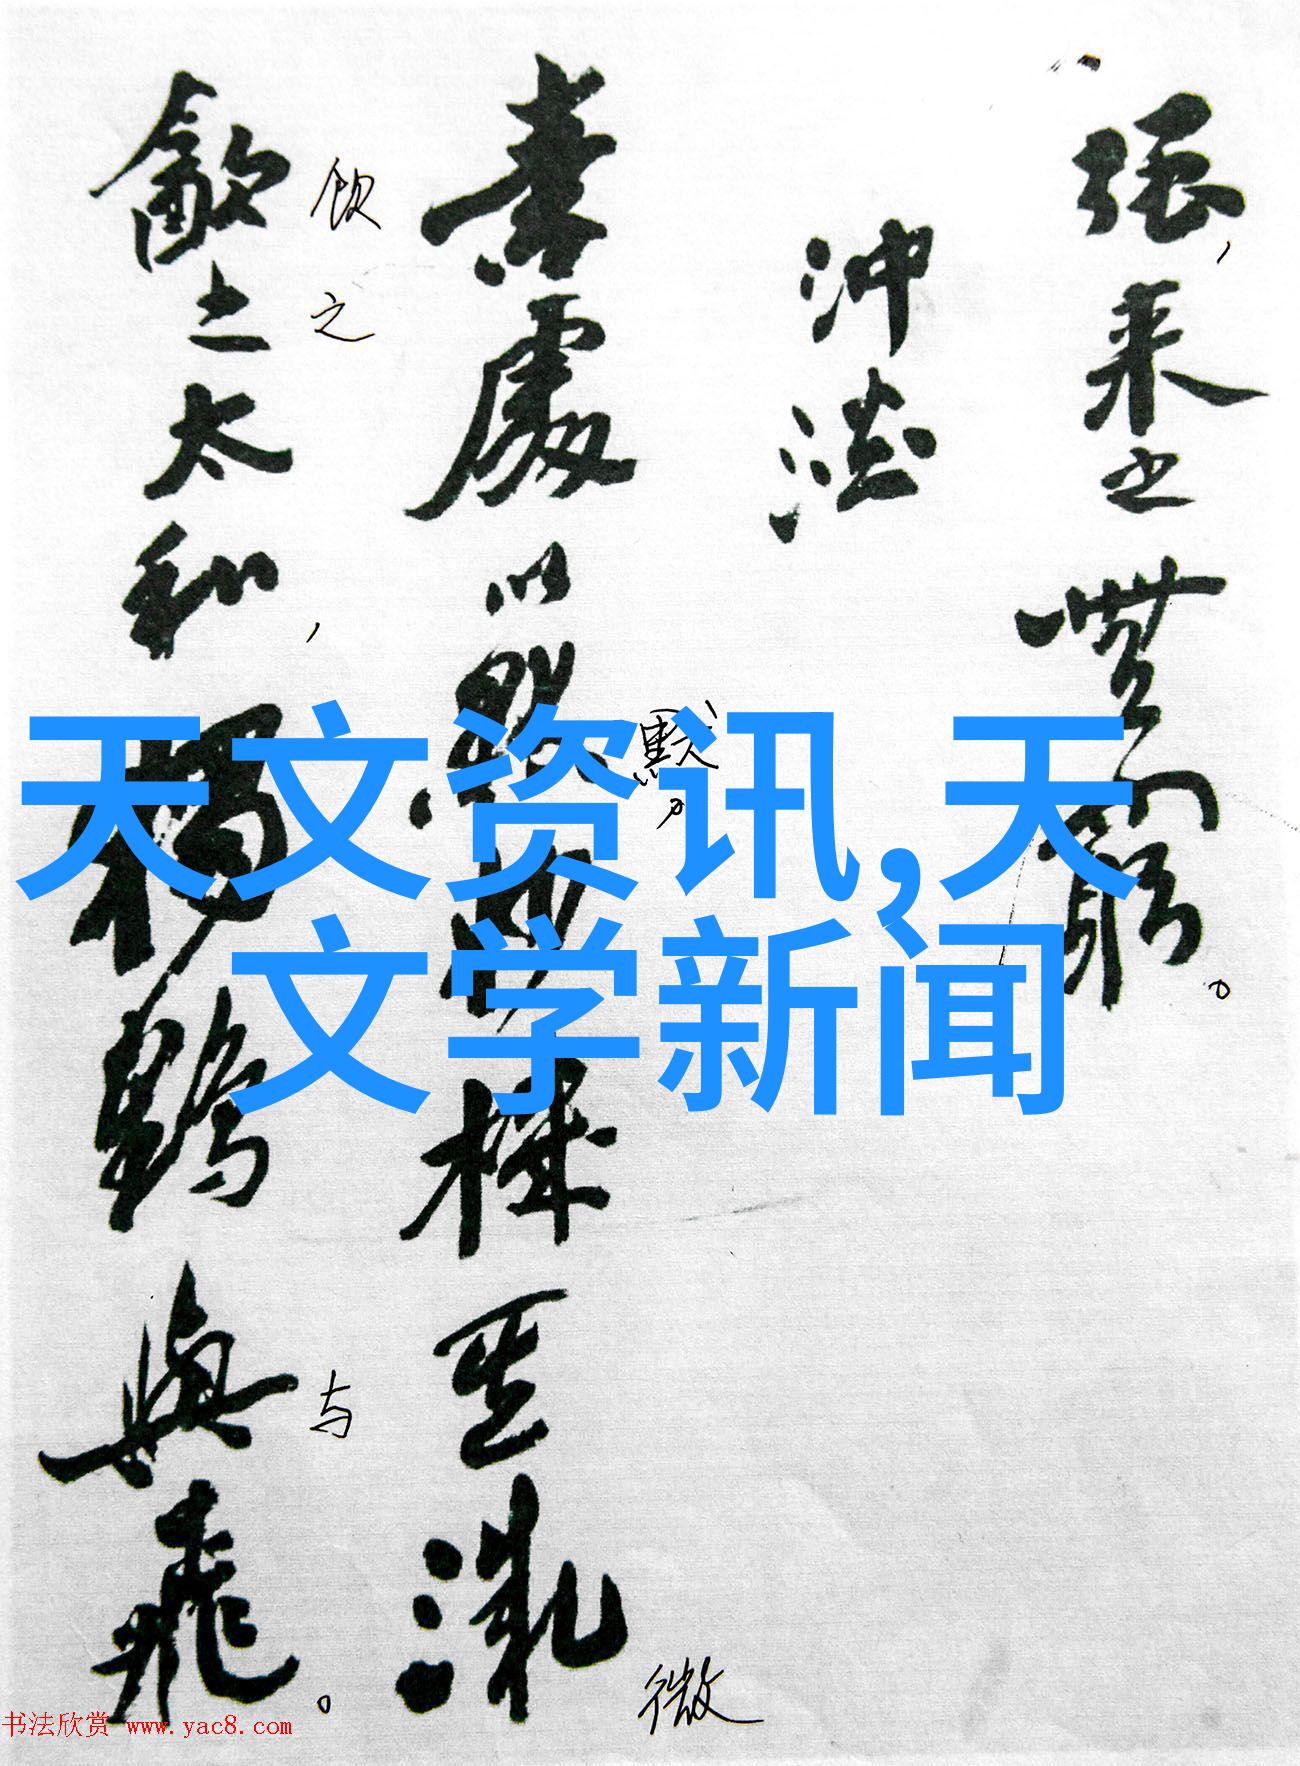 强，来之無窮。
冲淡
素處以默妙機其微
默，
微
飲之太和，獨鶴與飛。
饮之
与
天文资讯,天
文学新闻
书法欣赏 www.yac8.com